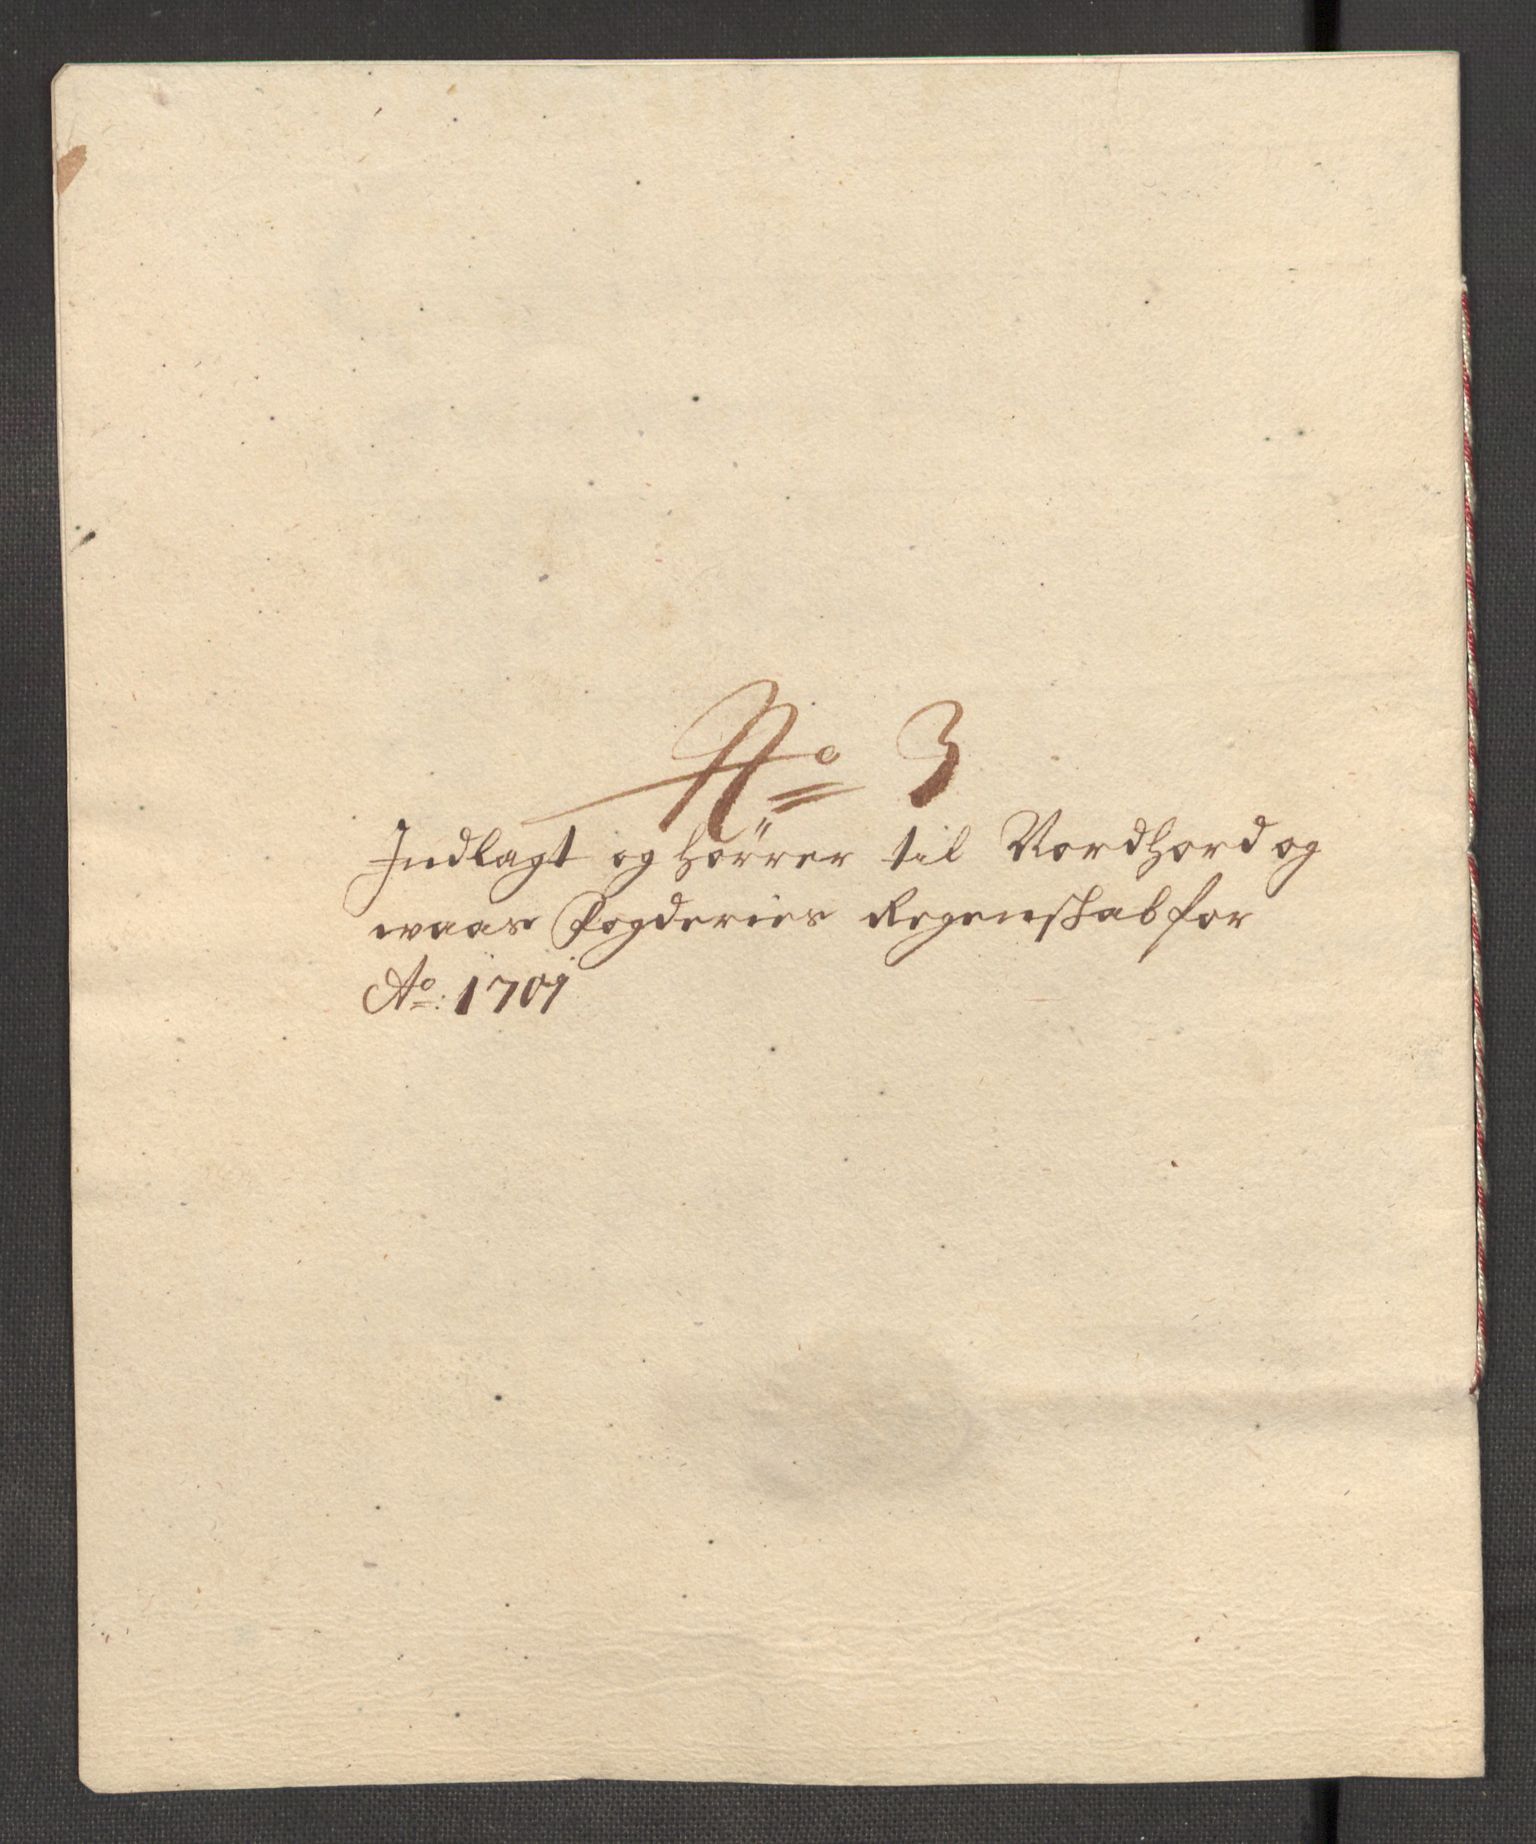 No 3
Indlagt og hörrer til Nordhord og
waas Fogderies Regenskab for
Ao: 1701